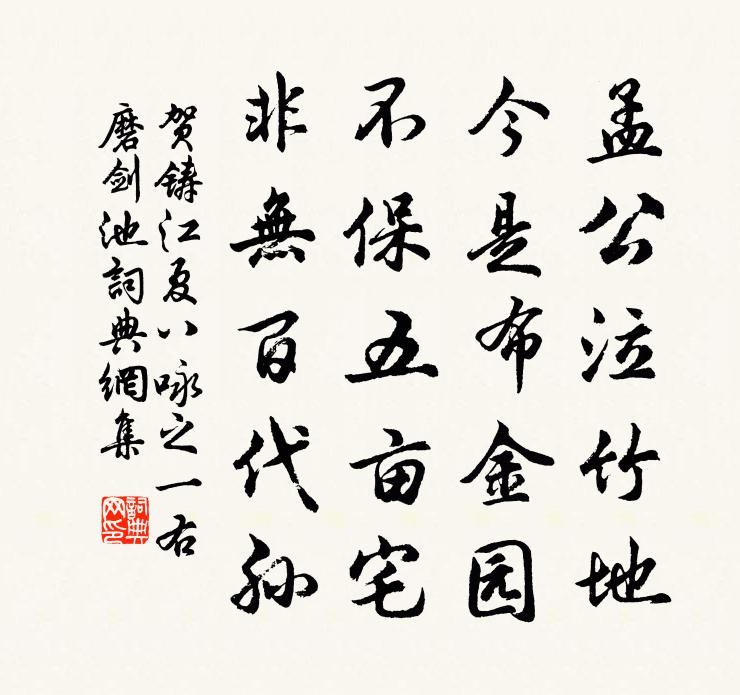 孟公泣竹地
今是布金园
不保五亩宅
非無百代孙
贺鑄江夏八咏之一右
磨剑池詞典網集
詞典
网印